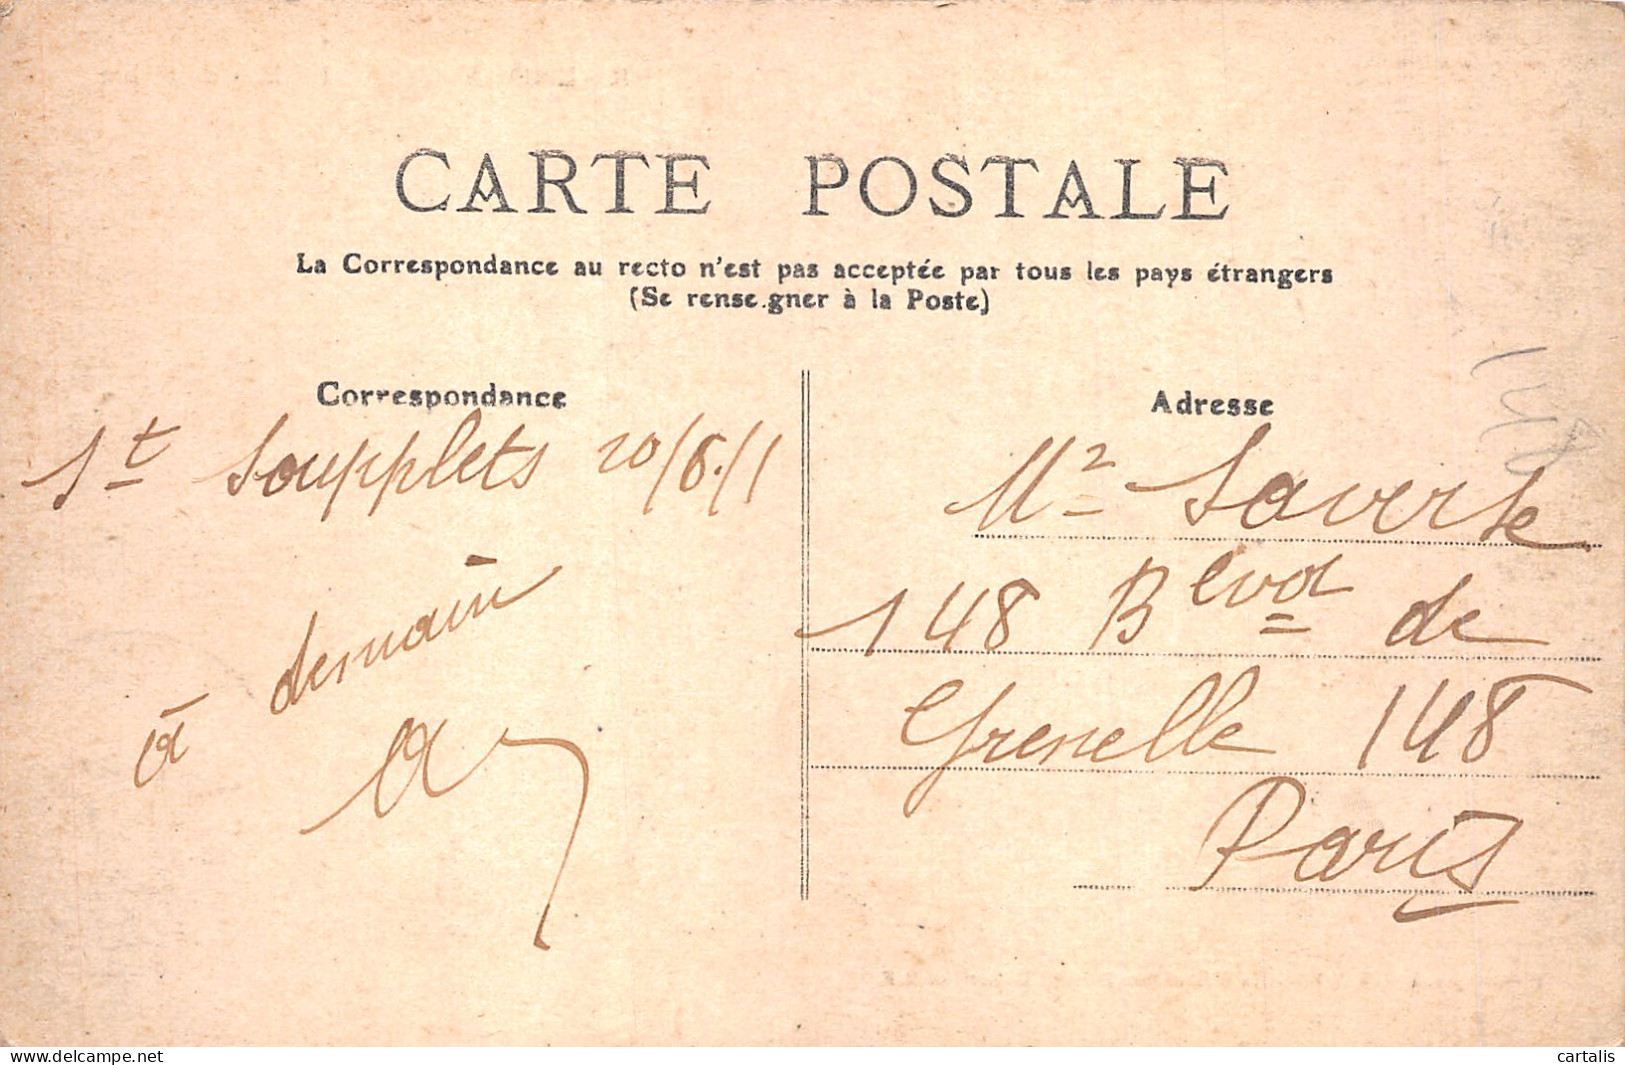 CARTE POSTALE
La Correspondance au recto n'est pas acceptée par tous les pays étrangers
(Se renseigner à la Poste)
Correspondance
St Soupplets 20/8/11
à demain
Adresse
Mr
148 Blvd de
Grenelle 148
Paris
cartalis
www.delcampe.net